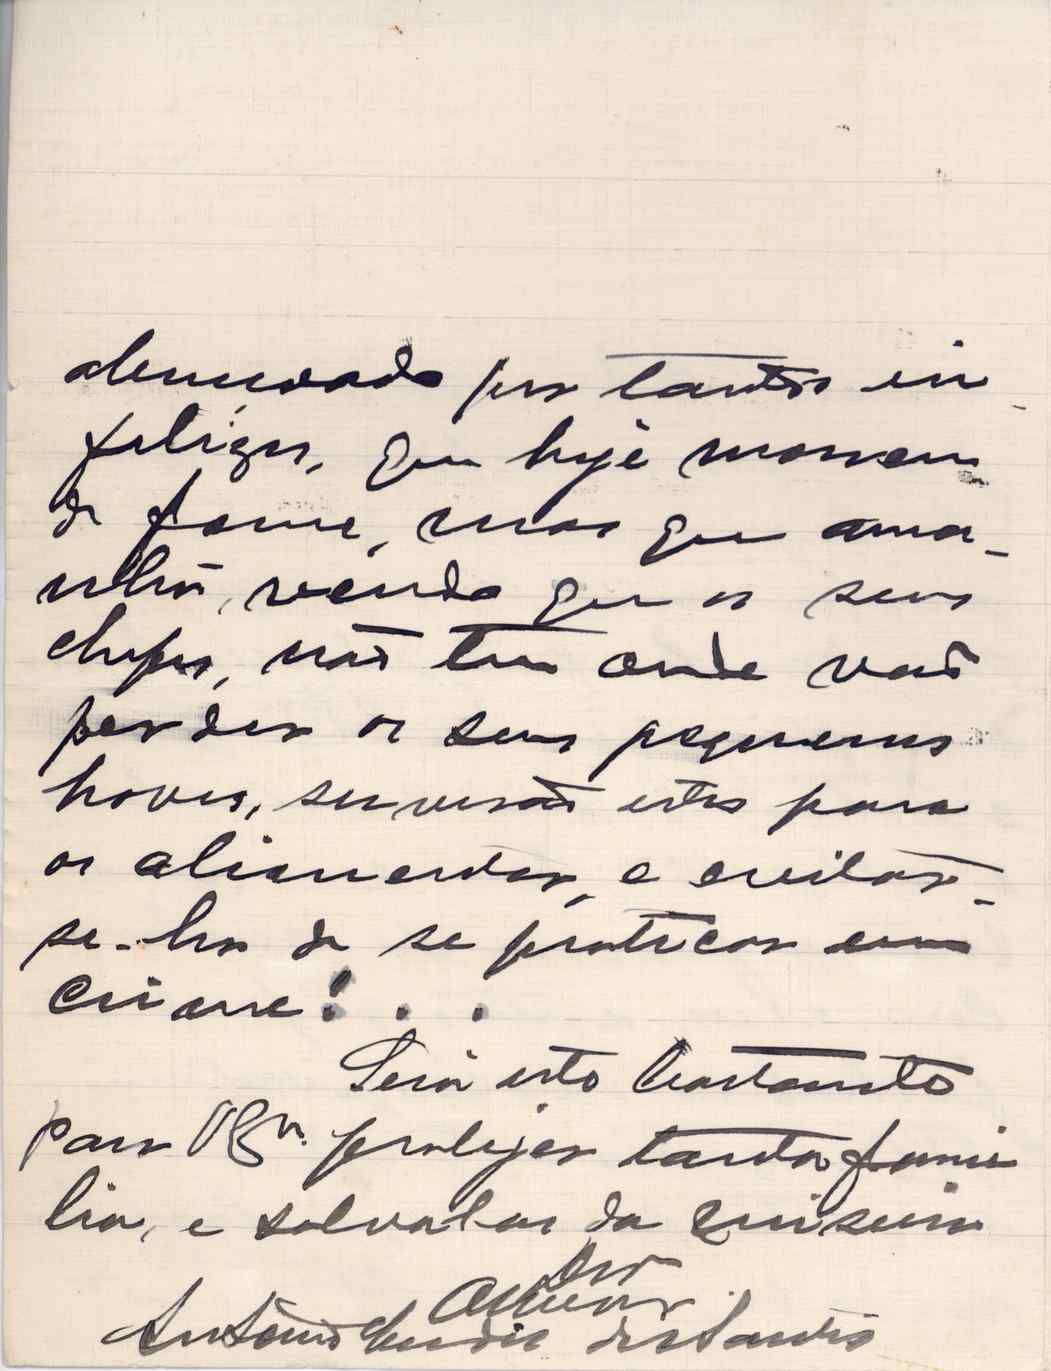 por tantos in-
felizes, que hoje morrem
de fome, mas que ama-
nhã, vendo que os seus
chefes, não tem onde vão
perder os seus pequenos
haveres, servirão estes para
os alimentar, e evitar-
se-ha de se praticar um
crime! . .
Será isto bastante
para V. Exª. protejer tanta fami
lia, e salvalas da miseria
António dos Santos